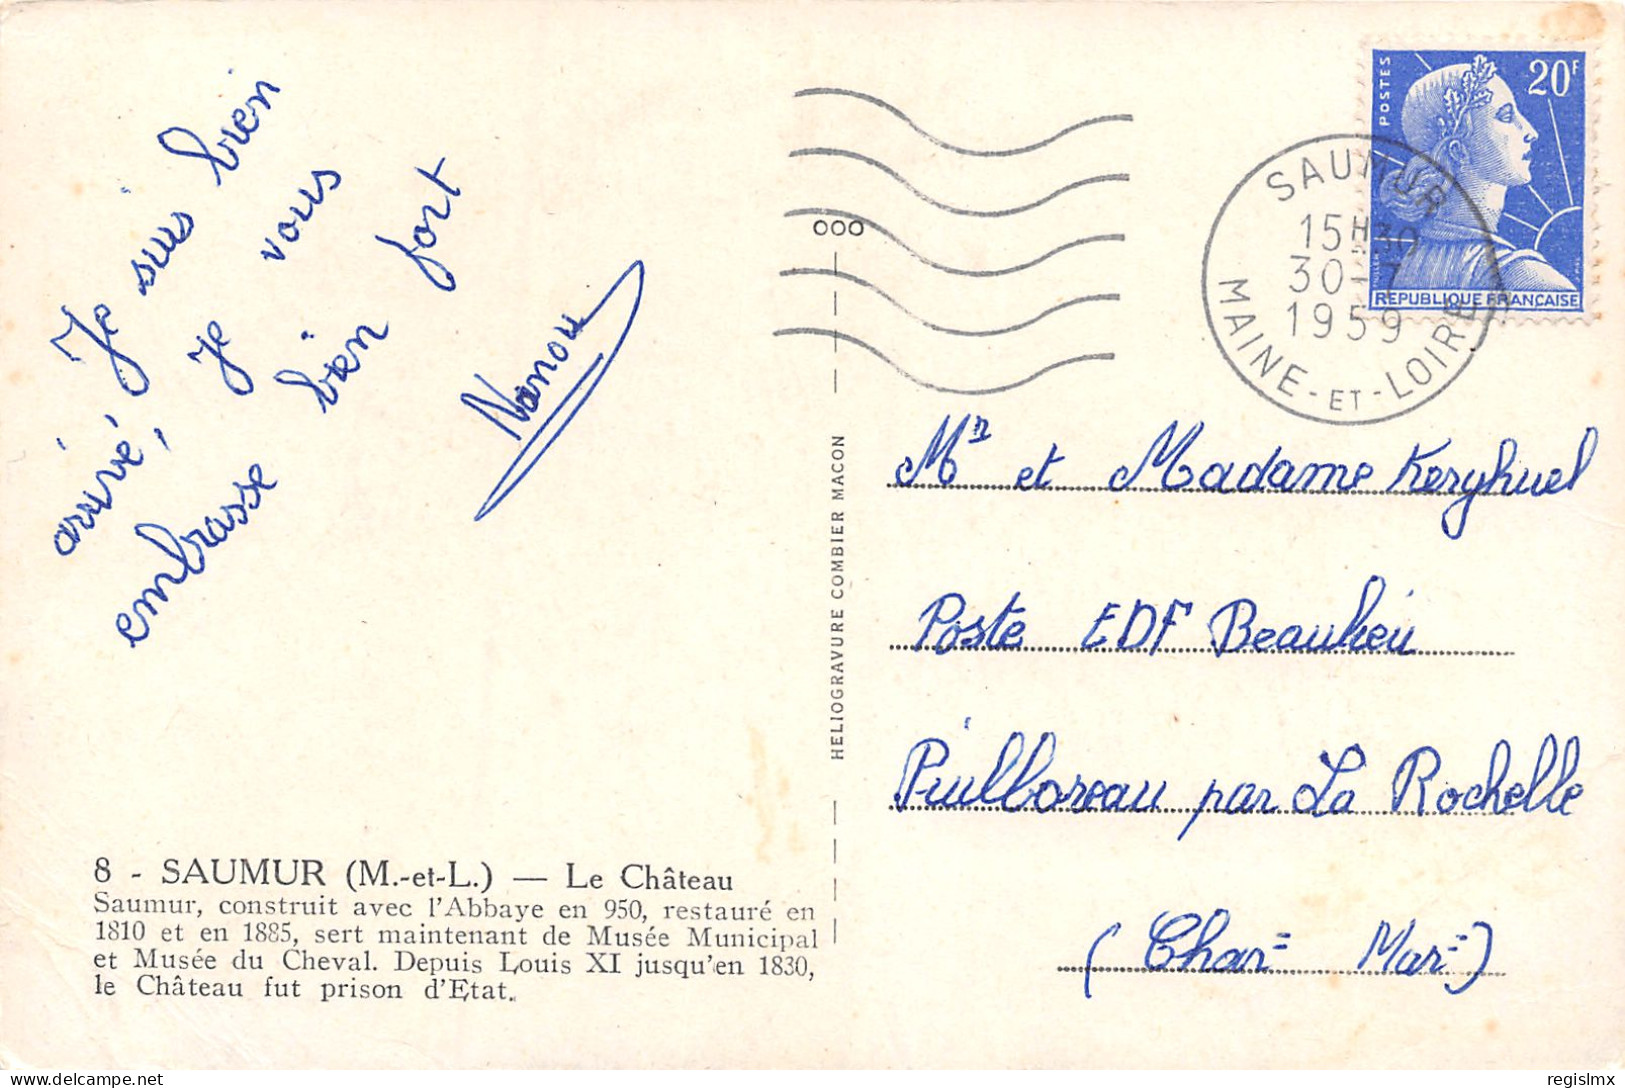 Je suis bien
arrivé, je vous
embrasse bien fort
Nanou
8 - SAUMUR (M.-et-L.) — Le Château
Saumur, construit avec l'Abbaye en 950, restauré en
1810 et en 1885, sert maintenant de Musée Municipal
et Musée du Cheval. Depuis Louis XI jusqu'en 1830,
le Château fut prison d'Etat.
HELIOGRAVURE COMBIER MACON
000
SAUMUR
15H30
30-7
1959
MAINE-ET-LOIRE
POSTES
20F
MULLER
REPUBLIQUE FRANÇAISE
Mr et Madame Keryhuel
Poste EDF Beaulieu
Puilboreau par La Rochelle
(Char= Mar=)
delcampe.net
regislmx